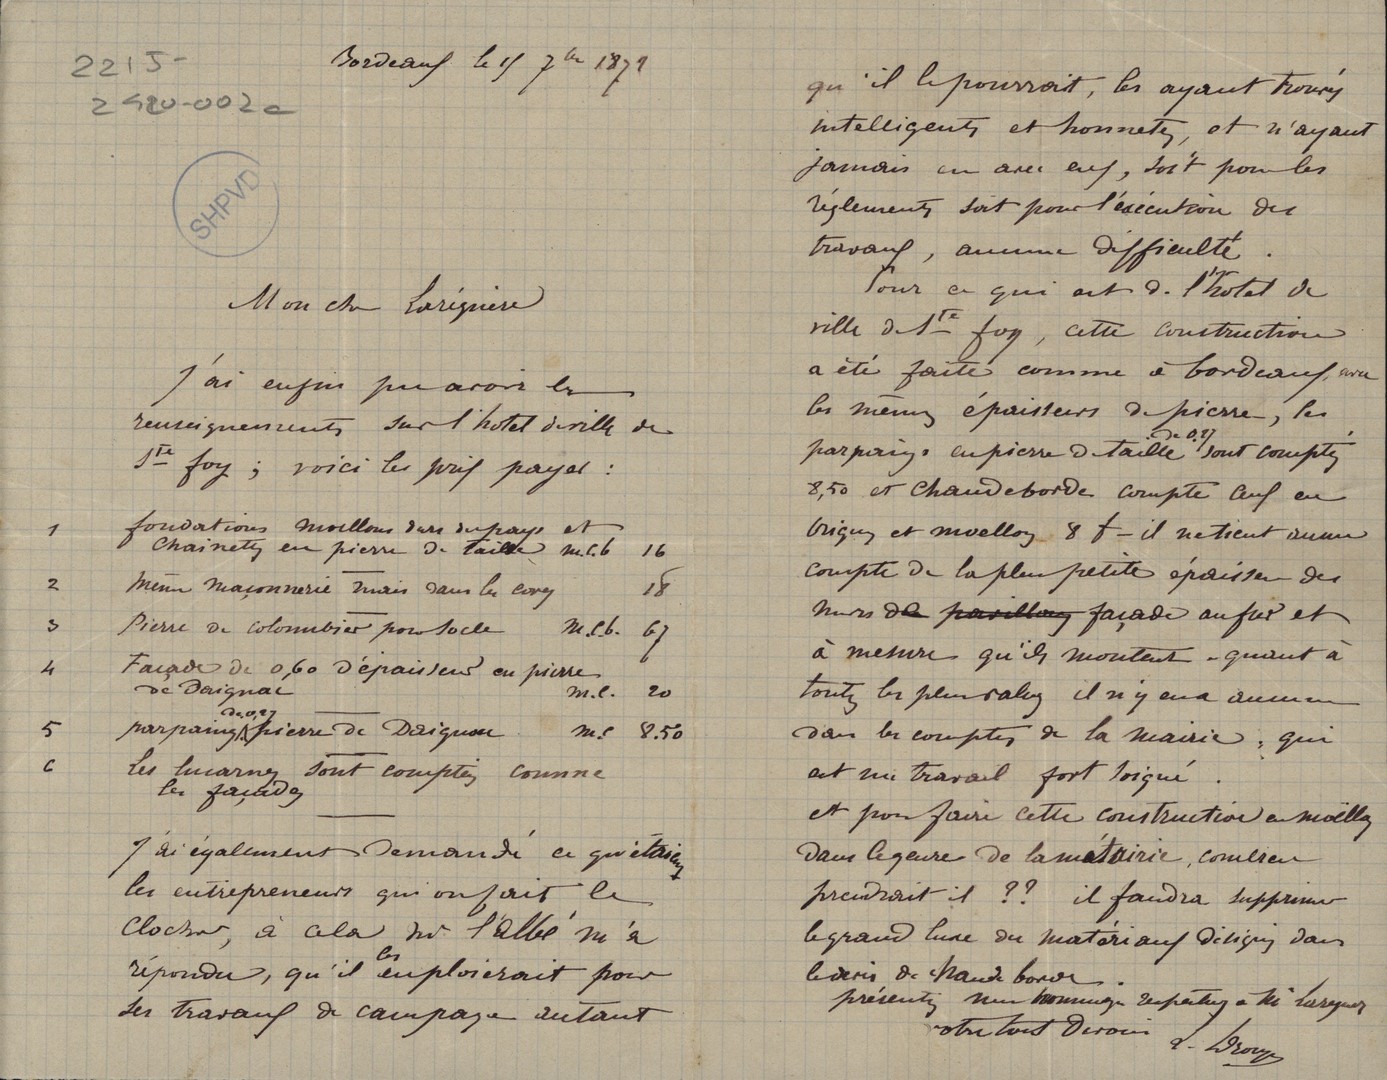 2215-
2420-002c
SHPVD
Bordeaux le 15 7bre 1871
Mon cher Larégnère
J'ai enfin pu avoir les
renseignements sur l'hotel de ville de
Ste foy ; voici les prix payés :
1 fondations moellons durs du pays et
chainettes en pierre de taille m.c.b 16
2 Même maçonnerie mais dans les caves 18
3 Pierre de colombier pour socle m.c.b. 67
4 Façade de 0,60 d'épaisseur en pierre
de Daignac m.c. 20
5 parpaings de 0,27 pierre de Daignac m.c 8.50
6 Les lucarnes sont comptées comme
les façades
J'ai également demandé ce qu'étaient
les entrepreneurs qui on fait le
Clocher, à cela Mr l'Abbé m'a
répondu, qu'il les emploierait pour
ses travaux de campagne autant
qu'il le pourrait, les ayant trouvés
intelligents et honnetes, et n'ayant
jamais eu avec eux, soit pour les
réglements soit pour l'exécution des
travaux, aucune difficulté.
Pour ce qui est de l'hotel de
ville de Ste foy, cette construction
a été faite comme à bordeaux, avec
les mêmes épaisseurs de pierre, les
parpaings en pierre de taille de 0,27 sont comptés
8,50 et Chaudeborde compte ceux en
briques et moellons 8 f - il ne tient aucun
compte de la plus petite épaisseur des
murs de pavillons façade au fur et
à mesure qu'ils montent - quant à
toutes les plus values il n'y en a aucune
dans les comptes de la mairie, qui
est un travail fort soigné.
et pour faire cette construction en moëllons
dans le genre de la métairie, combien
prendrait il ?? il faudra supprimer
le grand luxe du matériaux désignés dans
le devis de Chaudeborde.
présentez mes hommages respectueux à Me Laregnère
votre tout dévoué
L. Drouyn